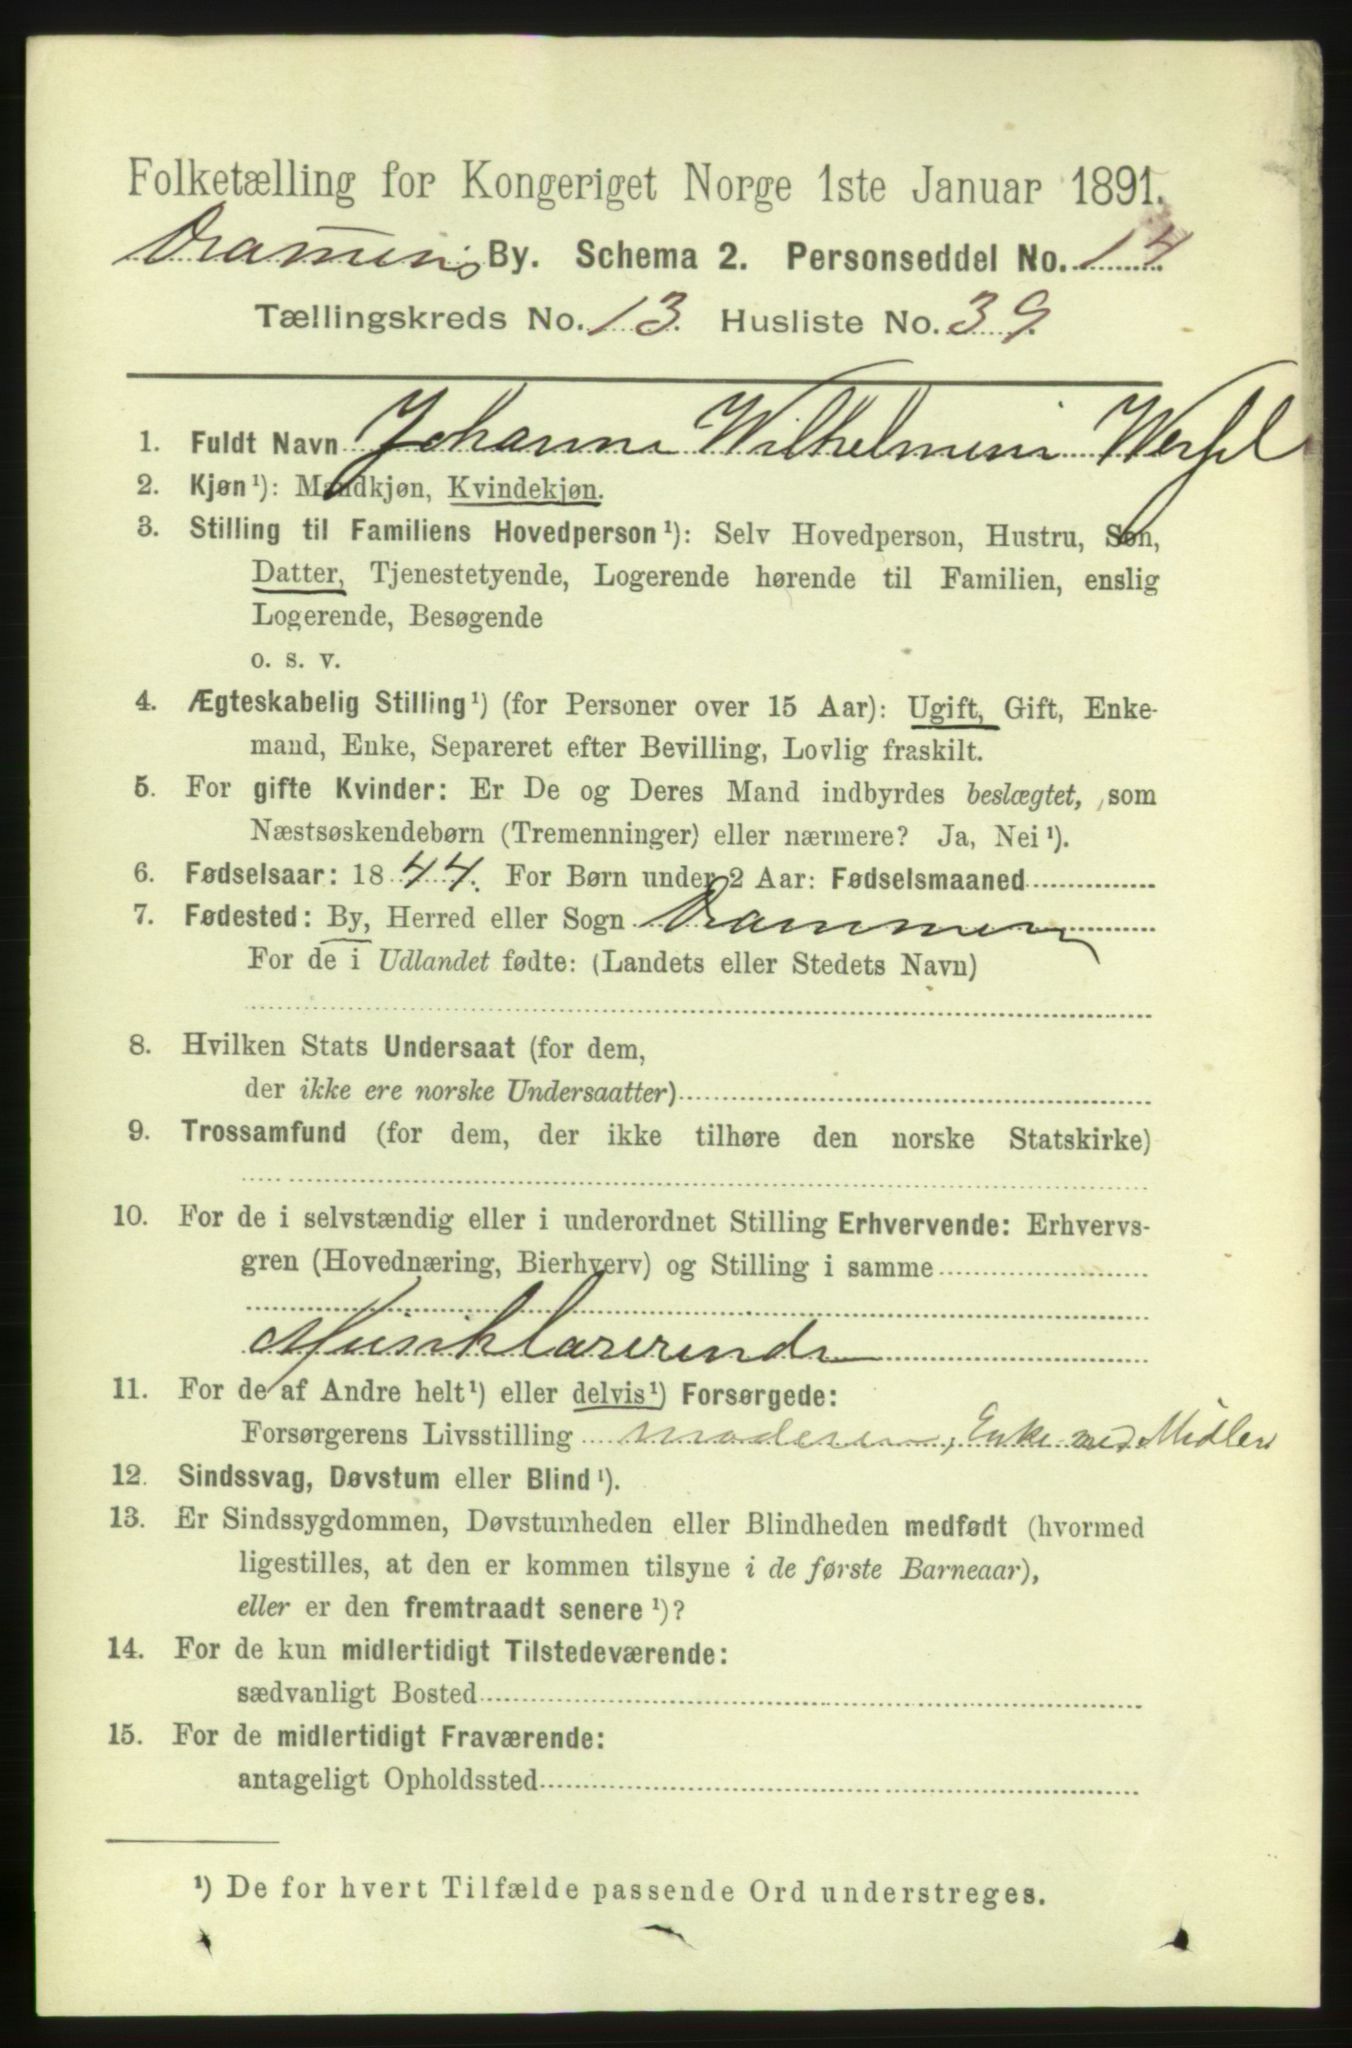 Folketælling for Kongeriget Norge 1ste Januar 1891.
Drammens By. Schema 2. Personseddel No. 14
Tællingskreds No. 13. Husliste No. 39.
1. Fuldt Navn Johanne Wilhelmine
2. Kjøn¹): Mandkjøn, Kvindekjøn.
3. Stilling til Familiens Hovedperson¹): Selv Hovedperson, Hustru, Søn,
Datter, Tjenestetyende, Logerende hørende til Familien, enslig
Logerende, Besøgende
o. s. v.
4. Ægteskabelig Stilling¹) (for Personer over 15 Aar): Ugift, Gift, Enke-
mand, Enke, Separeret efter Bevilling, Lovlig fraskilt.
5. For gifte Kvinder: Er De og Deres Mand indbyrdes beslægtet, som
Næstsøskendebørn (Tremenninger) eller nærmere? Ja, Nei¹).
6. Fødselsaar: 1844. For Børn under 2 Aar: Fødselsmaaned
7. Fødested: By, Herred eller Sogn Drammen
For de i Udlandet fødte: (Landets eller Stedets Navn)
8. Hvilken Stats Undersaat (for dem,
der ikke ere norske Undersaatter)
9. Trossamfund (for dem, der ikke tilhøre den norske Statskirke)
10. For de i selvstændig eller i underordnet Stilling Erhvervende: Erhvervs-
gren (Hovednæring, Bierhverv) og Stilling i samme
Musiklærerinde
11. For de af Andre helt¹) eller delvis¹) Forsørgede:
Forsørgerens Livsstilling moderen, Enke med Midler
12. Sindssvag, Døvstum eller Blind¹).
13. Er Sindssygdommen, Døvstumheden eller Blindheden medfødt (hvormed
ligestilles, at den er kommen tilsyne i de første Barneaar),
eller er den fremtraadt senere¹)?
14. For de kun midlertidigt Tilstedeværende:
sædvanligt Bosted
15. For de midlertidigt Fraværende:
antageligt Opholdssted
¹) De for hvert Tilfælde passende Ord understreges.